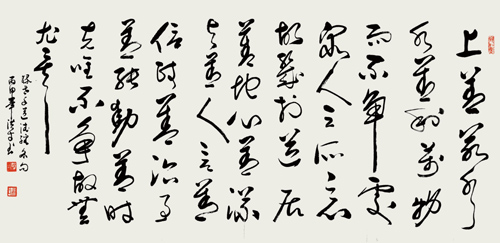 上善若水
水善利萬物
而不争處
衆人之所惡
故幾於道居
善地心善渊
与善人言善
信政善治事
善能動善時
夫唯不争故無
尤
録老子道德经句
丙申 书